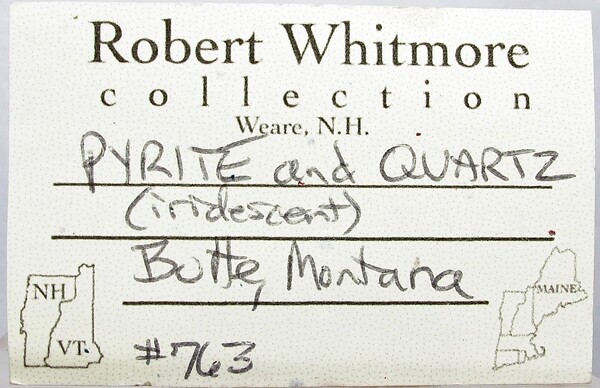 Robert Whitmore
collection
Weare, N.H.
PYRITE and QUARTZ
(iridescent)
Butte, Montana
NH
VT.
MAINE
#763